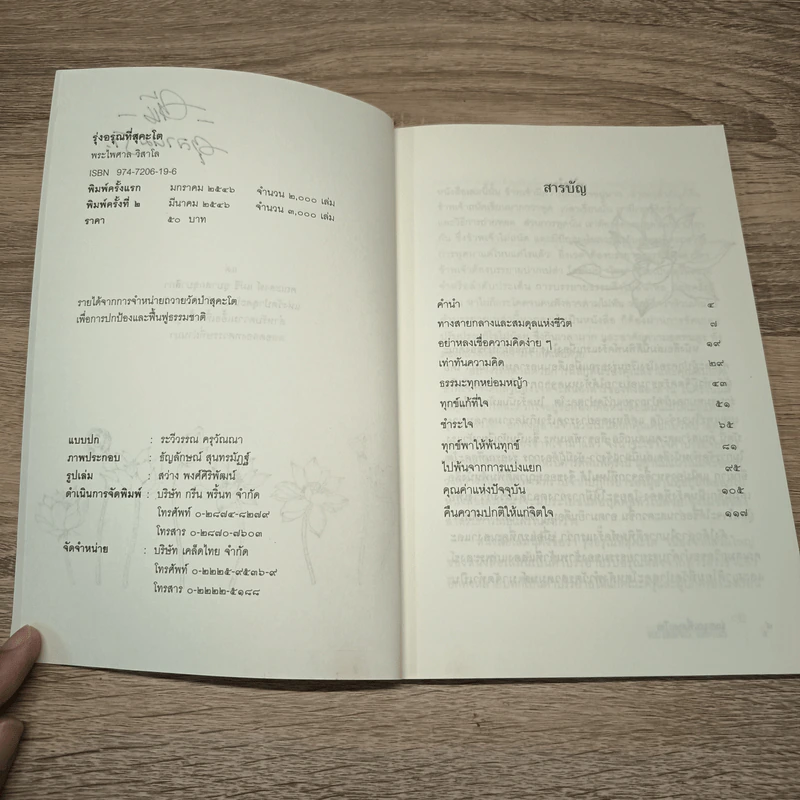 รุ่งอรุณที่สุคะโต
พระไพศาล วิสาโล
ISBN 974-7206-19-6
พิมพ์ครั้งแรก มกราคม ๒๕๔๖ จำนวน ๒,๐๐๐ เล่ม
พิมพ์ครั้งที่ ๒ มีนาคม ๒๕๔๖ จำนวน ๓,๐๐๐ เล่ม
ราคา ๕๐ บาท
รายได้จากการจำหน่ายถวายวัดป่าสุคะโต
เพื่อการปกป้องและฟื้นฟูธรรมชาติ
แบบปก : ระวีวรรณ ครุวัณณา
ภาพประกอบ : ธัญลักษณ์ สุนทรมัฏฐ์
รูปเล่ม : สว่าง พงศ์ศิริพัฒน์
ดำเนินการจัดพิมพ์ : บริษัท กรีน พริ้นท จำกัด
โทรศัพท์ ๐-๒๘๗๔-๘๒๗๙
โทรสาร ๐-๒๘๗๐-๗๖๐๓
จัดจำหน่าย : บริษัท เคล็ดไทย จำกัด
โทรศัพท์ ๐-๒๒๒๕-๙๕๓๖-๙
โทรสาร ๐-๒๒๒๒-๕๑๘๘
สารบัญ
คำนำ ๔
ทางสายกลางและสมดุลแห่งชีวิต ๗
อย่าหลงเชื่อความคิดง่าย ๆ ๑๙
เท่าทันความคิด ๒๙
ธรรมะทุกหย่อมหญ้า ๔๓
ทุกข์แก้ที่ใจ ๕๑
ชำระใจ ๖๕
ทุกข์พาให้พ้นทุกข์ ๘๑
ไปพ้นจากการแบ่งแยก ๙๕
คุณค่าแห่งปัจจุบัน ๑๐๕
คืนความปกติให้แก่จิตใจ ๑๑๗